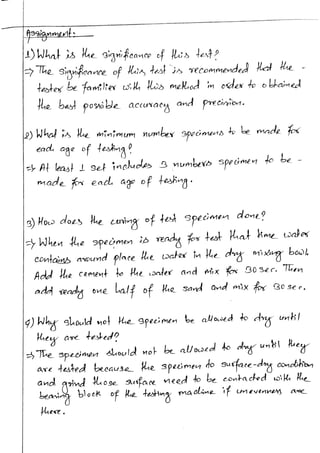 Assignment:
1) What is the significance of this test?
⇒ The significance of this test is recommended that the -
tester be familier with this method in order to obtained
the best possible accuracy and precision.
2) What is the minimum number specimens to be made for
each age of testing?
⇒ At least 1 set includes 3 numbers specimen to be -
made for each age of testing.
3) How does the curing of test specimen done?
⇒ When the specimen is ready for test that time water
contains around place the water in the dry mixing bowl.
Add the cement to the water and mix for 30 sec. Then
add ready one half of the sand and mix for 30 sec.
4) Why should not the specimen be allowed to dry until
they are tested?
⇒ The specimen should not be allowed to dry until they
are tested because the specimen to surface-dry condition
and grind those surface need to be contacted with the
bearing block of the testing machine if unevenness are
there.